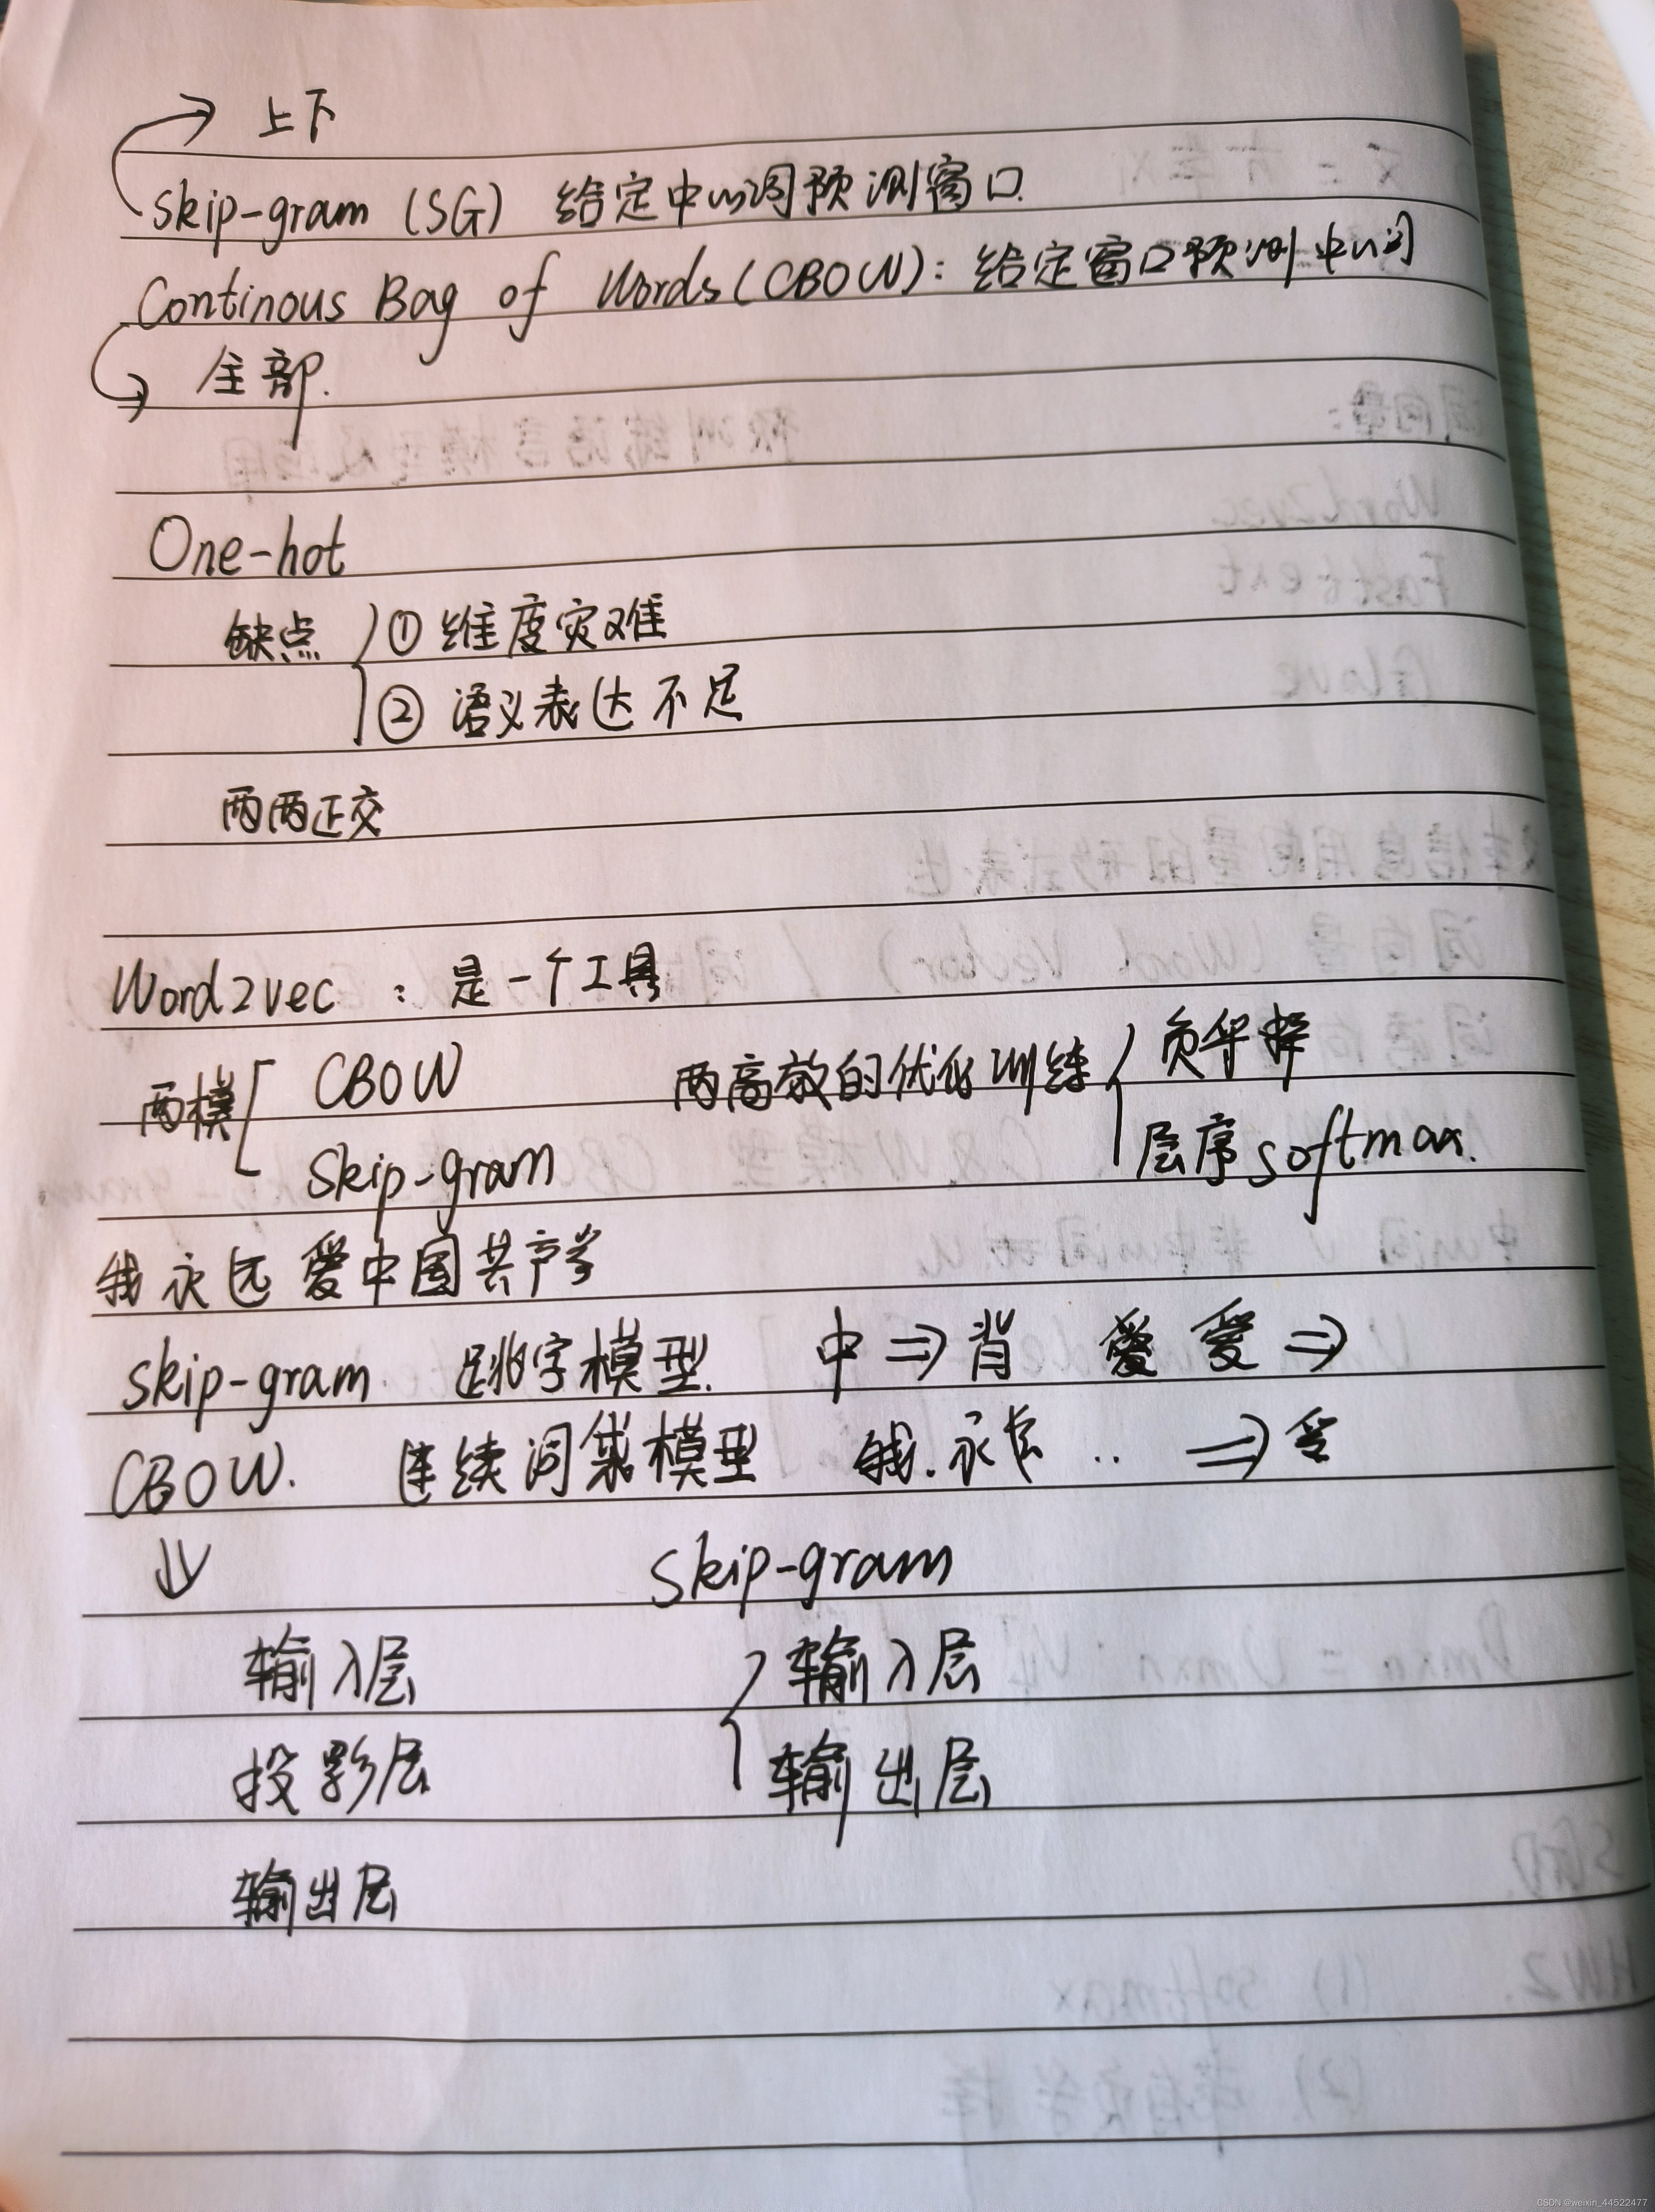 上下
Skip-gram (SG) 给定中心词预测窗口
Continous Bag of Words (CBOW): 给定窗口预测中心词
全部.
One-hot
缺点 ① 维度灾难
② 语义表达不足
两两正交
Word2vec : 是一个工具
两模 CBOW 两高效的优化训练 负采样
Skip-gram 层序softmax.
我永远爱中国共产党
Skip-gram 跳字模型. 中 ⇒ 爱 ⇒
CBOW. 连续词袋模型 我. 永远 .. ⇒
⇓ Skip-gram
输入层 输入层
投影层 输出层
输出层
CSDN @weixin_44522477